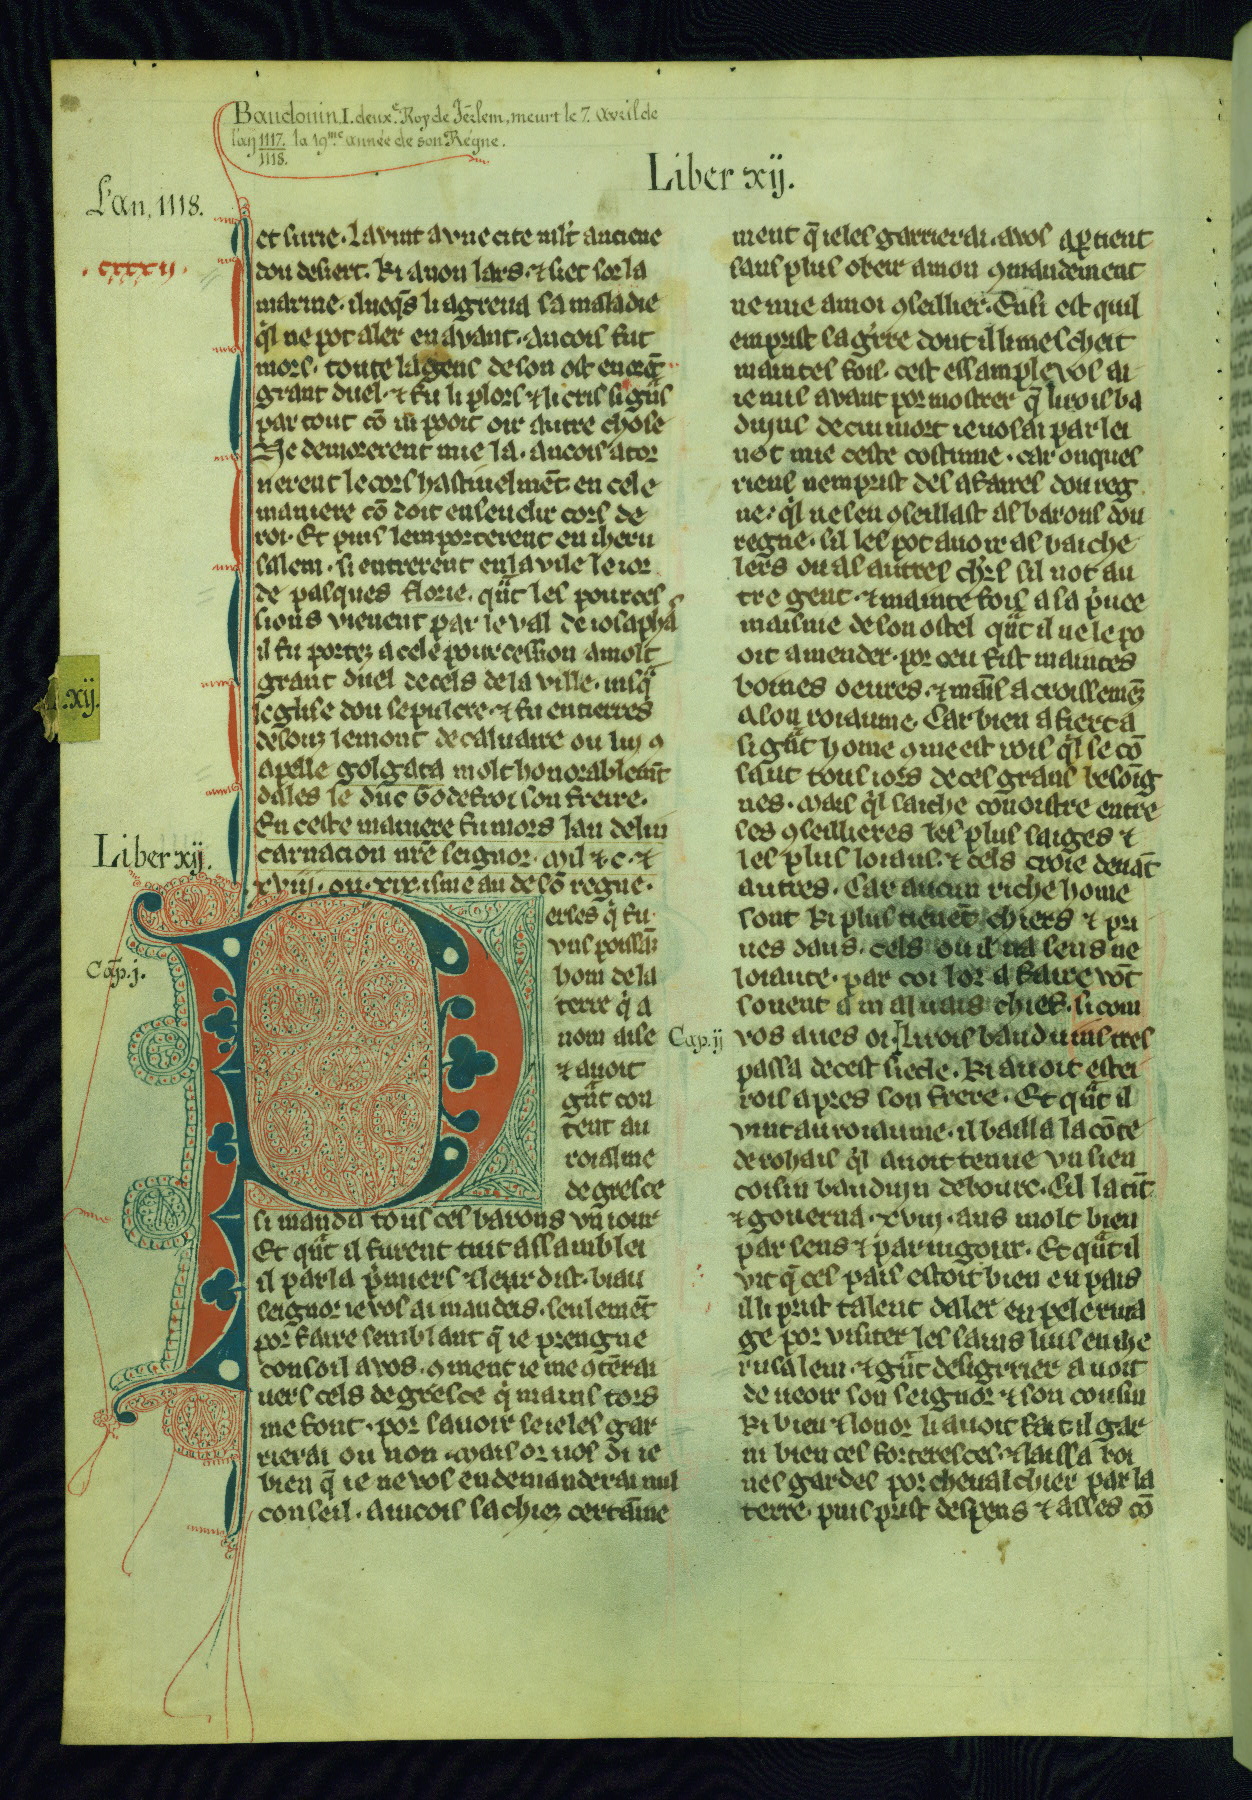 Baudouin I. deux.e Roy de Jerlem, meurt le 7. avril de
l'an 1117. la 19me année de son Régne.
1118.
Liber xij.
L'an, 1118.
.cxxxij.
et surie. la vint a vne cite mlt' anciene
dou desert. Ki a non lars. ⁊ siet sor la
marine. ilueq̄s li agreua sa maladie
q'l ne pot aler en avant. ancois fut
mors. toute la gens de son ost en ore̅t
grant duel. ⁊ fu li plors ⁊ li cris si gr̃s
par tout co̅ ni pooit oir autre chose
Ne demorerent mie la. ancois ator
nerent le cors hastiuelme̅t. en cele
maniere co̅ doit enseuelir cors de
roi. Et puis lemporterent en iheru
salem. si entrerent en la vile le ior
de pasques florie. qu̅t les pources
sions vienent par le val de iosapha
il fu portez a cele pourcession a molt
grant duel de cels de la ville. iusq̃
leglise dou sepulcre. ⁊ fu entierres
desouz le mont de caluaire ou lun 9
apelle golgata molt honorableme̅t
dales le duc Godefroi son freire.
En ceste maniere fu mors lan de lin
carnacion nr̅e seignor. mil ⁊ c. ⁊
xviij. ou .xix. isme an de so̅ regne.
Liber xij.
Cap. j.
D
erses q' fu
vns poissa̅s
hom de la
terre q' a
nom aise
⁊ auoit
gu̅t con
tent au
roialme
de gresce
si manda tous ces barons vn iour
Et qu̅t il furent tuit assamblei
il parla p̃miers ⁊ leur dist. biau
seignor ie vos ai mandeis. seuleme̅t
por faire semblant q̄ ie prengne
consoil a vos. 9ment ie me 9te̅rai
uers cels de gresce q' mains tors
me font. por sauoir se ie les gar
rierai ou non. mais or uos di ie
bien q̄ ie ne vos en demanderai nul
conseil. aincois sachiez certai̅ne
ment q̄ ie les garrierai. a vos ap̲tient
sans plus obeir a mon 9mandement
ne mie a moi 9seillier. Ensi est quil
emprist la gr̃re dont il li meschait
maintes fois. cest essample vos ai
ie mis avant por mostrer q̄ li rois ba
duins de cui mort ie vos ai parlei
not mie ceste costume. car onques
riens nemprist des afaires dou reg
ne. q'l ne sen 9seillast as barons dou
regne. sil les pot auoir as baiche
lers ou as autres ch'rs sil not au
tre gent. ⁊ mainte fois a la p̃uee
maisme de son ostel qu̅t il ne le po
oit amender. por ceu fist maintes
boines oeures. ⁊ mai̅s acroissemez̅
a son roiaume. Car bien afiert a
si gu̅t home 9me est rois q'l se co̅
saut tous iors de ces grans besoig
nes. Mais q'l saiche conoistre entre
ses 9seillieres les plus saiges ⁊
les plus loiaus. ⁊ cels croie deua̅t
autres. Car aucun riche home
sont Ki plus tienet chiers ⁊ pri
ues dans. cels ou il na sens ne
loiaute. par coi lor afaire vo̅t
souent a maluais chief. si com
Cap. ij
vos aues oi. Li rois bauduins tres
passa de cest siecle. Ki auoit estei
rois apres son frere. Et qu̅t il
vint au roiaume. il bailla la co̅te
de rohais q'l auoit tenue vn sien
coisin bauduin de bourc. Cil la ti̅t
⁊ gouerna .xviij. ans molt bien
par sens ⁊ par uigour. Et qu̅t il
vit q̄ ces pais estoit bien en pais
il li prist talent daler en pelerina
ge por visiter les sains lius en ihe
rusalem. ⁊ gu̅t desigrrier auoit
de ueoir son seignor ⁊ son cousin
Ki bien ⁊ lonor li auoit fait. il gar
ni bien ces forteresces. ⁊ laissa boi
nes gardes por cheualchier par la
terre. puis prist despens ⁊ asses co̅
.xij.